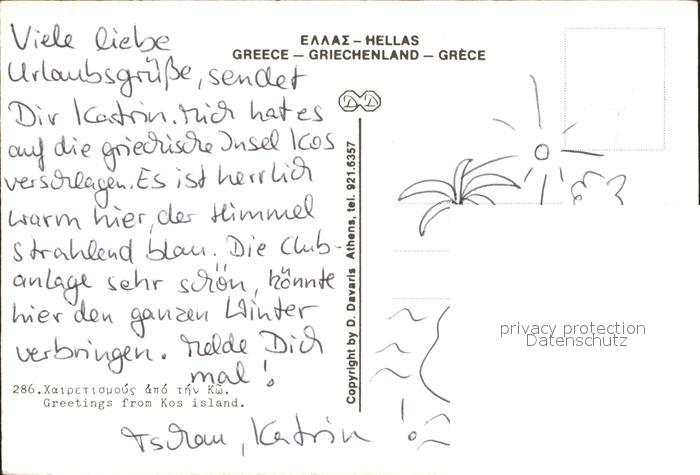 Viele liebe
Urlaubsgrüße, sendet
Dir Katrin. Mich hat es
auf die griechische Insel Kos
verschlagen. Es ist herrlich
warm hier, der Himmel
strahlend blau. Die Club-
anlage sehr schön, könnte
hier den ganzen Winter
verbringen. Melde Dich
mal!
286. Χαιρετισμούς ἀπό τήν Κῶ.
Greetings from Kos island.
Tschau, Katrin
ΕΛΛΑΣ – HELLAS
GREECE – GRIECHENLAND – GRÈCE
D D
Copyright by D. Davaris Athens, tel. 921.6357
privacy protection
Datenschutz